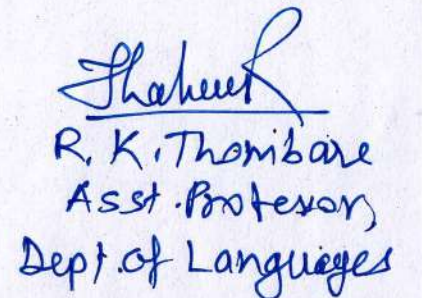 R. K. Thombare
Asst. Professor,
Dept. of Languages